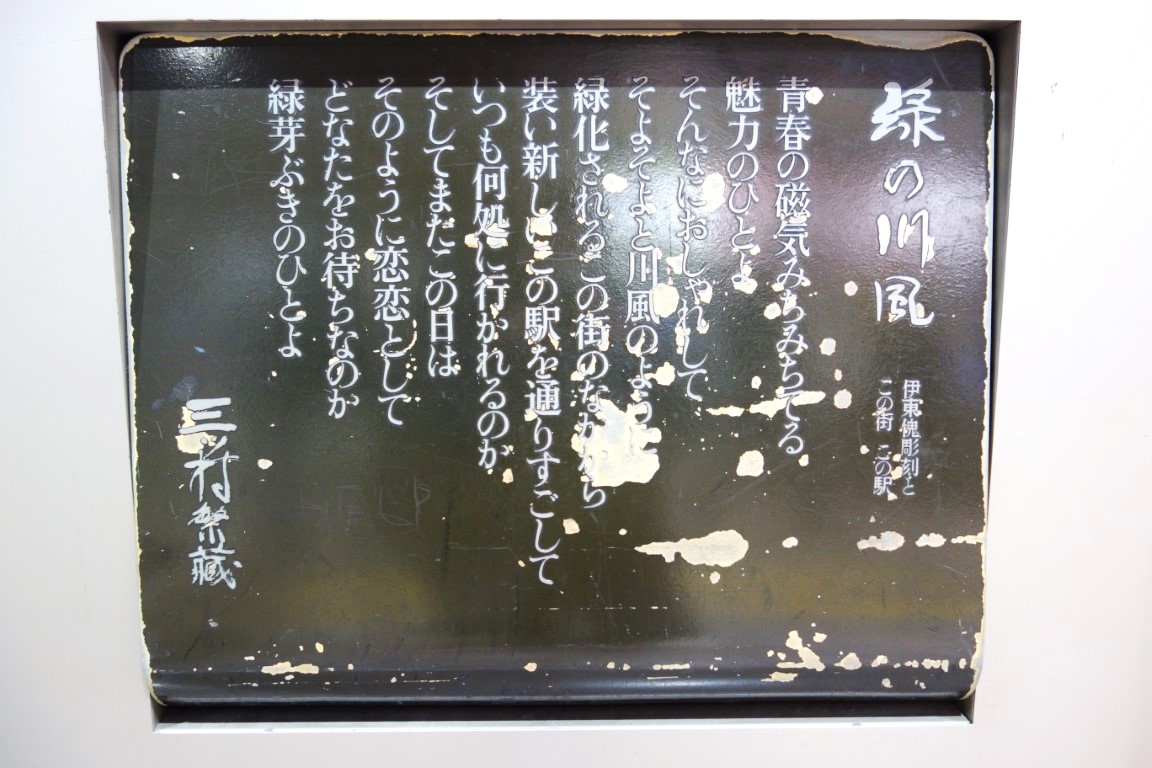 緑の川風
伊東傀彫刻と
この街 この駅
青春の磁気みちみちてる
魅力のひとよ
そんなにおしゃれして
そよそよと川風のように
緑化されるこの街のなかから
装い新しいこの駅を通りすごして
いつも何処に行かれるのか
そしてまたこの日は
そのように恋恋として
どなたをお待ちなのか
緑芽ぶきのひとよ
三ノ村繁蔵
HELP